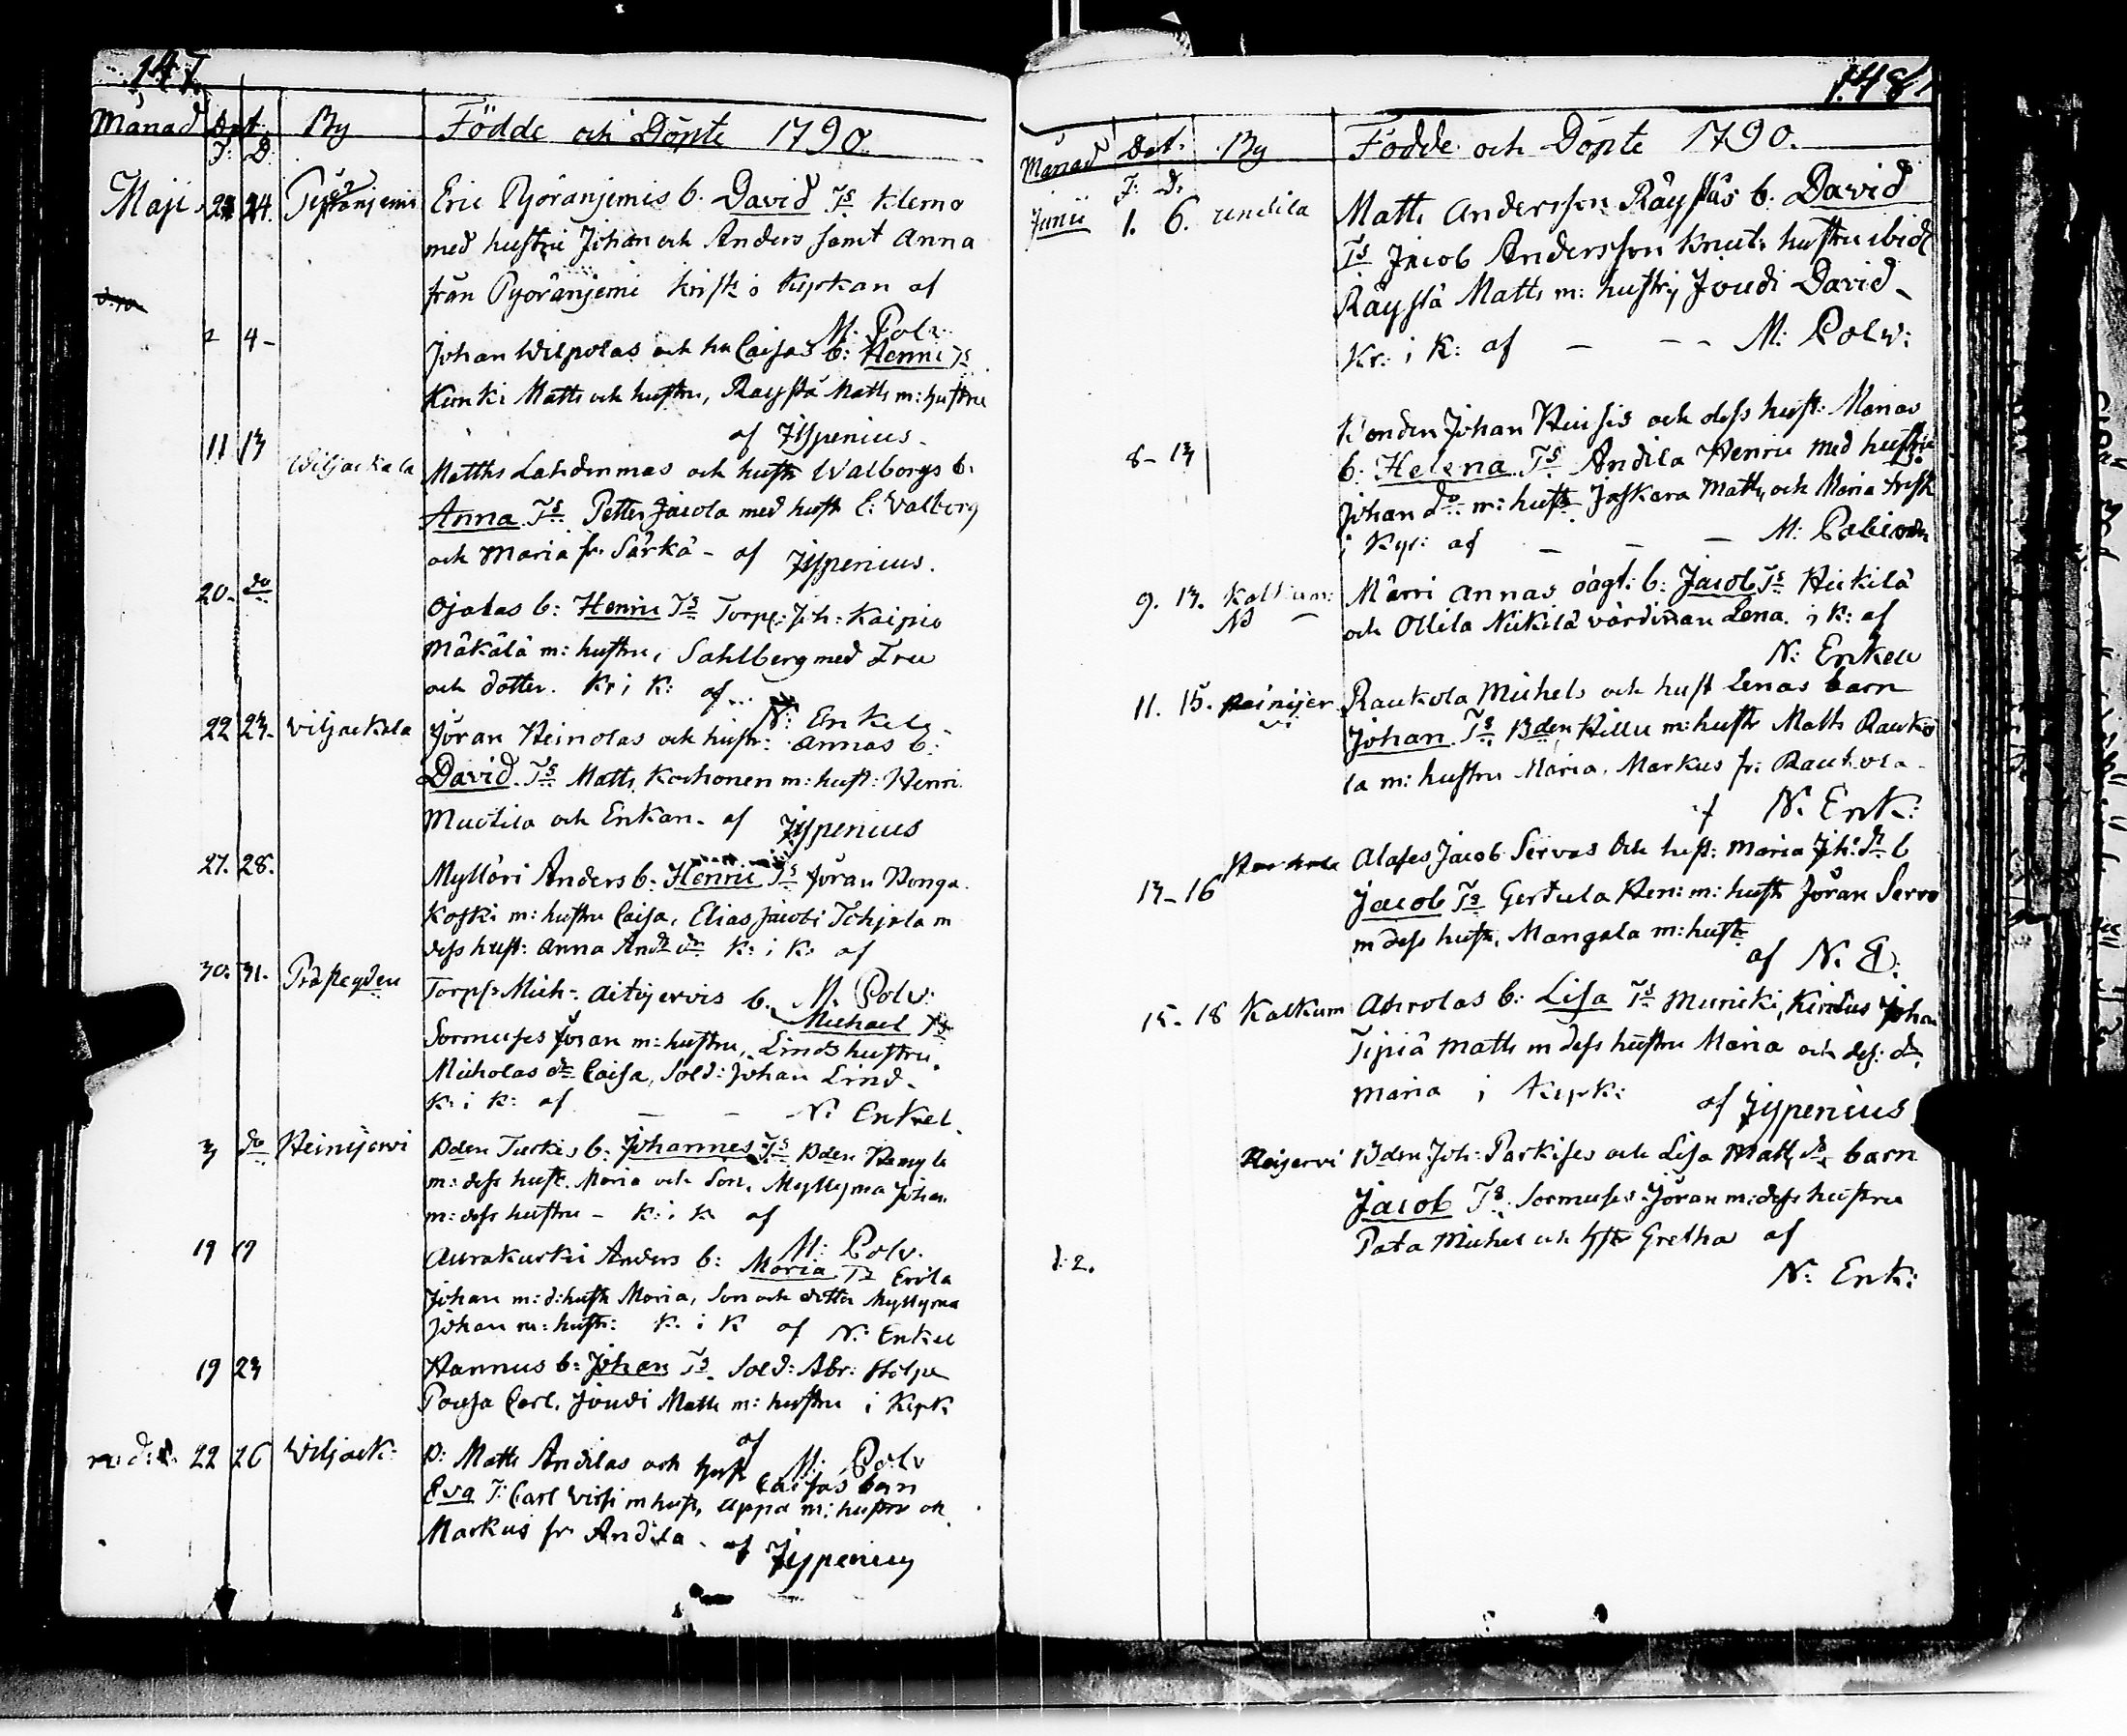 147.
Månad Dat. By Födde och Döpte 1790.
F: D:
Maji 24. Pyöränjemi Eric Pyöränjemis b. David Ts Klemo
med hustru Johan och Anders samt Anna
från Pyöränjemi krist i Kyrkan af
M. Polv.
2 4 - Johan Wilpolas och hu Caisas b: Henric Ts
Kunki Matts och hustru, Räystä Matts m: hustru
af Zyspenius.
11 13 Wiljackala Matths Lahdenmas och hustr Walborgs b.
Anna Ts Petter Jacola med hustr E: Valborg
och Maria fr. Särkä - af Zyspenius.
20. do Ojalas b: Henric Ts Torp: Joh: Kaipio
Mäkälä m: hustru, Sahlberg med Fru
och dotter. Kr i K: af
N: Enkel
22 23. Viljackala Jöran Heinolas och hustr: Annas b:
David Ts Matts Korhonen m: hust: Henri
Muotila och Enkan. af Zyspenius
27. 28. Myllöri Anders b: Henric Ts Jöran Honga
koski m: hustru Caisa, Elias Jacobi m
dess hust: Anna And dr K: i K: af
M. Polv:
30. 31. Torp: Mich: Aitojervis b.
Michael Ts
Sormuses Jöran m: hustru, Linds hustru
Micholas dr Caisa, Sold: Johan Lind.
K: i K: af - - N: Enkel.
3 do Heinijervi Bden Turkis b: Johannes Ts Bden
m: dess hustr. Maria och Son, Myllyma Johan
m: dess hustru - K: i K af
M: Polv.
19 19 Aurakurki Anders b: Maria Ts Erola
Johan m: d: hustr Maria, Son och dotter Myllyma
Johan m: hustr: K. i K af N: Enkel
19 23 Hannus b: Johan Ts. Sold: Abr: Hölpe
Pousa Carl. Joudi Matts m: hustru i Kyrk
af M: Polv
22 26 Viljack: B: Matts Andilas och hustr Caisas barn
Eva T: Carl Virsi m hust, Appa m: hustru och
Markus fr. Andila. af Zyspenius
148.
Månad Dat: By Födde och Döpte 1790.
F: D.
Junii 1. 6. Undila Matts Andersson Räystäs b: David
Ts Jacob Andersson Knut: hustru ibid
Räystä Matts m: hustru, Joudi David -
Kr: i K: af - - - M: Polv:
8 - 13 Bonden Johan Huisis och dess hust: Marias
b: Helena Ts Andila Henric med hustru
Johan do m: hustr Jaskara Matts och Maria krist
i Kyr: af - - - M:
9. 13. Kalkum: Märri Annas oägt: b: Jacob Ts Heikilä
NB - och Ollila Nikilä värdinan Lena. i K: af
N: Enkel
11. 15. Raukola Michels och hust Lenas barn
Johan. Ts Bden Hillu m: hustr Matts Rauko
la m: hustru Maria. Markus fr: Raukola -
af N. Enk:
13 - 16 Alases Jacob Servos och hust: Maria Joh: dr b
Jacob Ts Gertula Hen: m: hustr Jöran Servo
m dess hustr, Mangala m: hustr
af N. E:
15 - 18 Kalkum Ahrolas b: Lisa Ts Muricki, Johan
Tipiä Matts m dess hustru Maria och dess: dr
Maria i Kyrk: af Zyspenius
Heijervi Bden Joh: Parkises och Lisa Matts dr barn
Jacob Ts. Sormuses Jöran m: dess hustru
Pata Michel och hstr Gretha af
1. 2.
N: Enk: